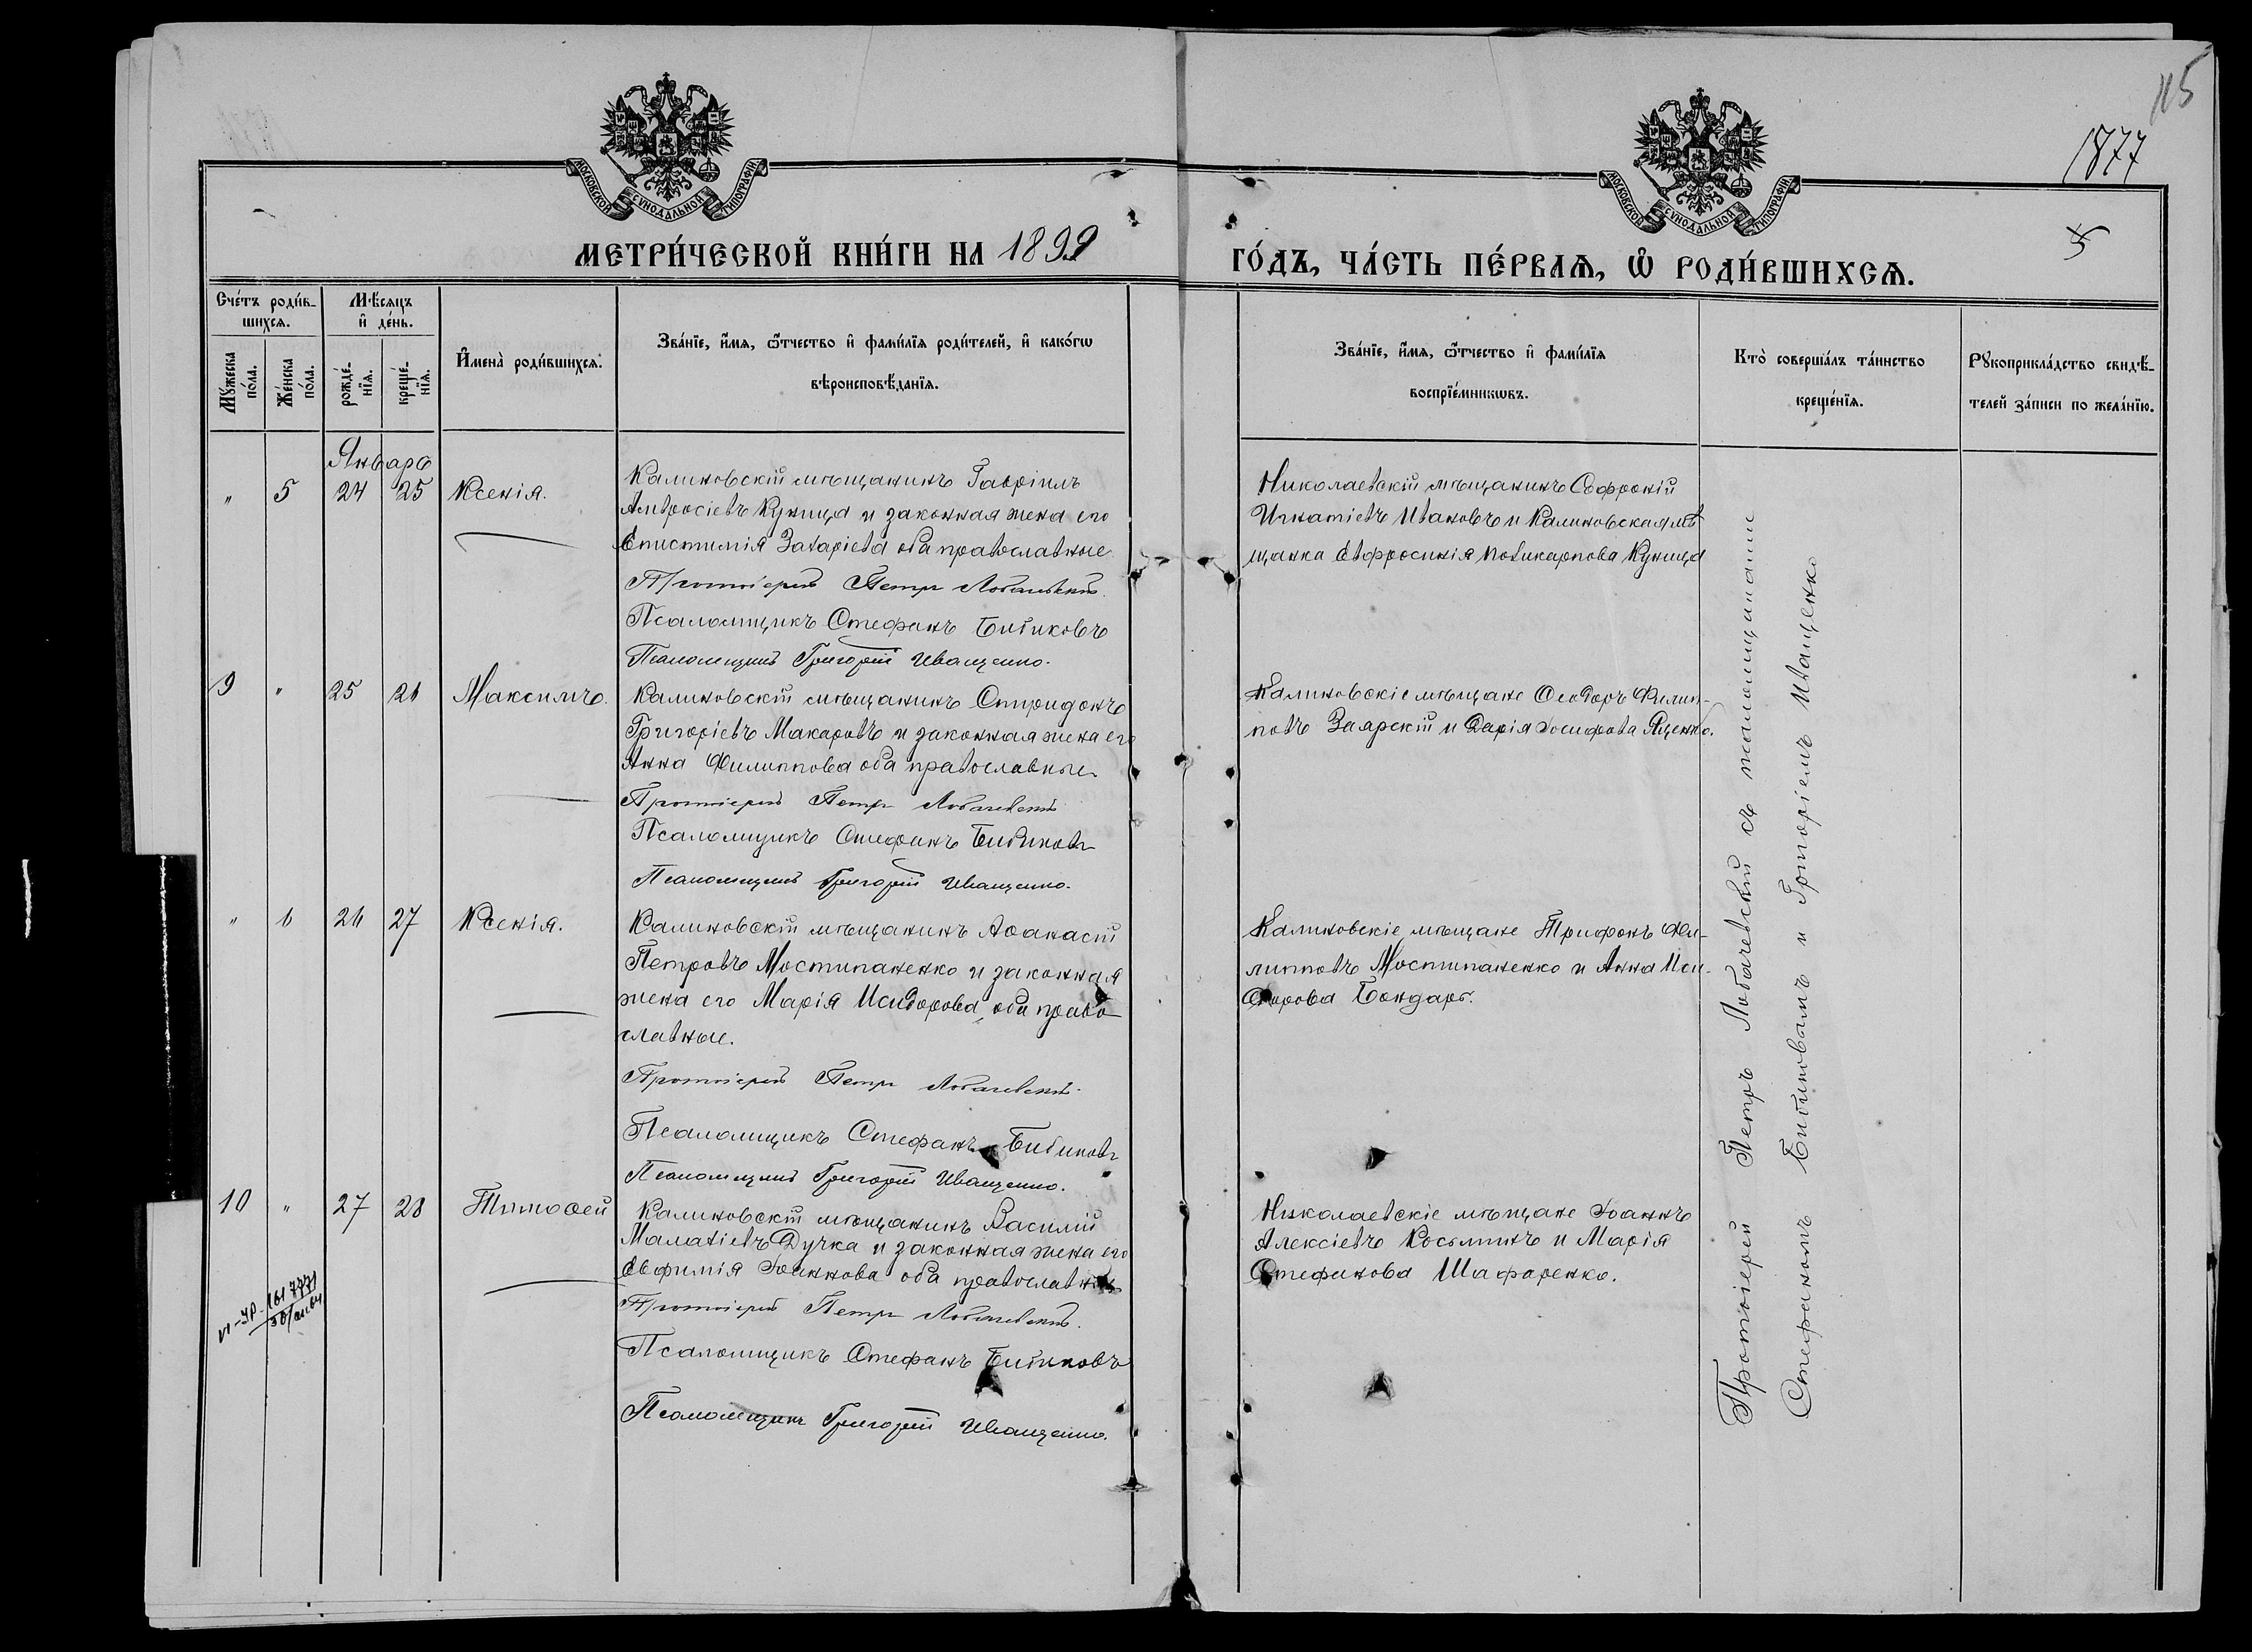 115
1877
5
МОСКОВСКОЙ СѴНОДАЛЬНОЙ ТИПОГРАФІИ
МОСКОВСКОЙ СѴНОДАЛЬНОЙ ТИПОГРАФІИ
МЕТРИ́ЧЕСКОЙ КНИ́ГИ НА 1899
ГО́ДЪ, ЧА́СТЬ ПЕ́РВАѦ, Ѡ҆ РОДИ́ВШИХСѦ.
Сче́тъ роди́в-
шихсѧ.
Мꙋ́жеска по́ла.
Же́нска по́ла.
Мѣ́сѧцъ
и҆ де́нь.
рожде́-
нїѧ.
креще́-
нїѧ.
И҆мена̀ роди́вшихсѧ.
Зва́нїе, и҆́мѧ, ѻ҆́тчество и҆ фами́лїѧ роди́телей, и҆ како́гѡ
вѣроисповѣ́данїѧ.
Зва́нїе, и҆́мѧ, ѻ҆́тчество и҆ фами́лїѧ
воспрїе́мникѡвъ.
Кто̀ соверша́лъ та́инство
креще́нїѧ.
Рꙋкоприкла́дство свидѣ́-
телей за́писи по жела́нїю.
Январь
" 5 24 25 Ксенія.
Калиновскій мѣщанинъ Гавріилъ
Амвросіевъ Куница и законная жена его
Епистимія Захаріева оба православные
Протоіерей Петръ Лобачевскій.
Псаломщикъ Стефанъ Бибиковъ
Псаломщикъ Григорій Иващенко.
Николаевскій мѣщанинъ Софроній
Игнатіевъ Ивановъ и Калиновская мѣ-
щанка Евфросинія Поликарпова Куница
9 " 25 26 Максимъ.
Калиновскій мѣщанинъ Спиридонъ
Григоріевъ Макаровъ и законная жена его
Анна Филиппова оба православные.
Протоіерей Петръ Лобачевскій
Псаломщикъ Стефанъ Бибиковъ
Псаломщикъ Григорій Иващенко.
Калиновскіе мѣщане Ѳеодоръ Филип-
повъ Заярскій и Дарія Іосифова Яценко.
" 6 26 27 Ксенія.
Калиновскій мѣщанинъ Аѳанасій
Петровъ Мостипаненко и законная
жена его Марія Исидорова, оба право-
славные.
Протоіерей Петръ Лобачевскій.
Псаломщикъ Стефанъ Бибиковъ
Псаломщикъ Григорій Иващенко.
Калиновскіе мѣщане Трифонъ Фи-
липповъ Мостипаненко и Анна Иси-
дорова Бондарь.
10 " 27 28 Тимоѳей
Калиновскій мѣщанинъ Василій
Малахіевъ Дучка и законная жена его
Евфимія Іоаннова оба православные
Протоіерей Петръ Лобачевскій.
Псаломщикъ Стефанъ Бибиковъ
Псаломщикъ Григорій Иващенко.
Николаевскіе мѣщане Іоаннъ
Алексіевъ Косьминъ и Марія
Стефанова Шафаренко.
Протоіерей Петръ Лобачевскій съ псаломщиками
Стефаномъ Бибиковымъ и Григоріемъ Иващенко